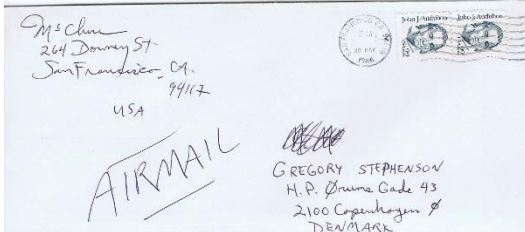 McClure
264 Downey St.
San Francisco, CA.
94117
USA
AIRMAIL
John J. Audubon
John J. Audubon
1986
GREGORY STEPHENSON
H.P. Ørums Gade 43
2100 Copenhagen Ø
DENMARK